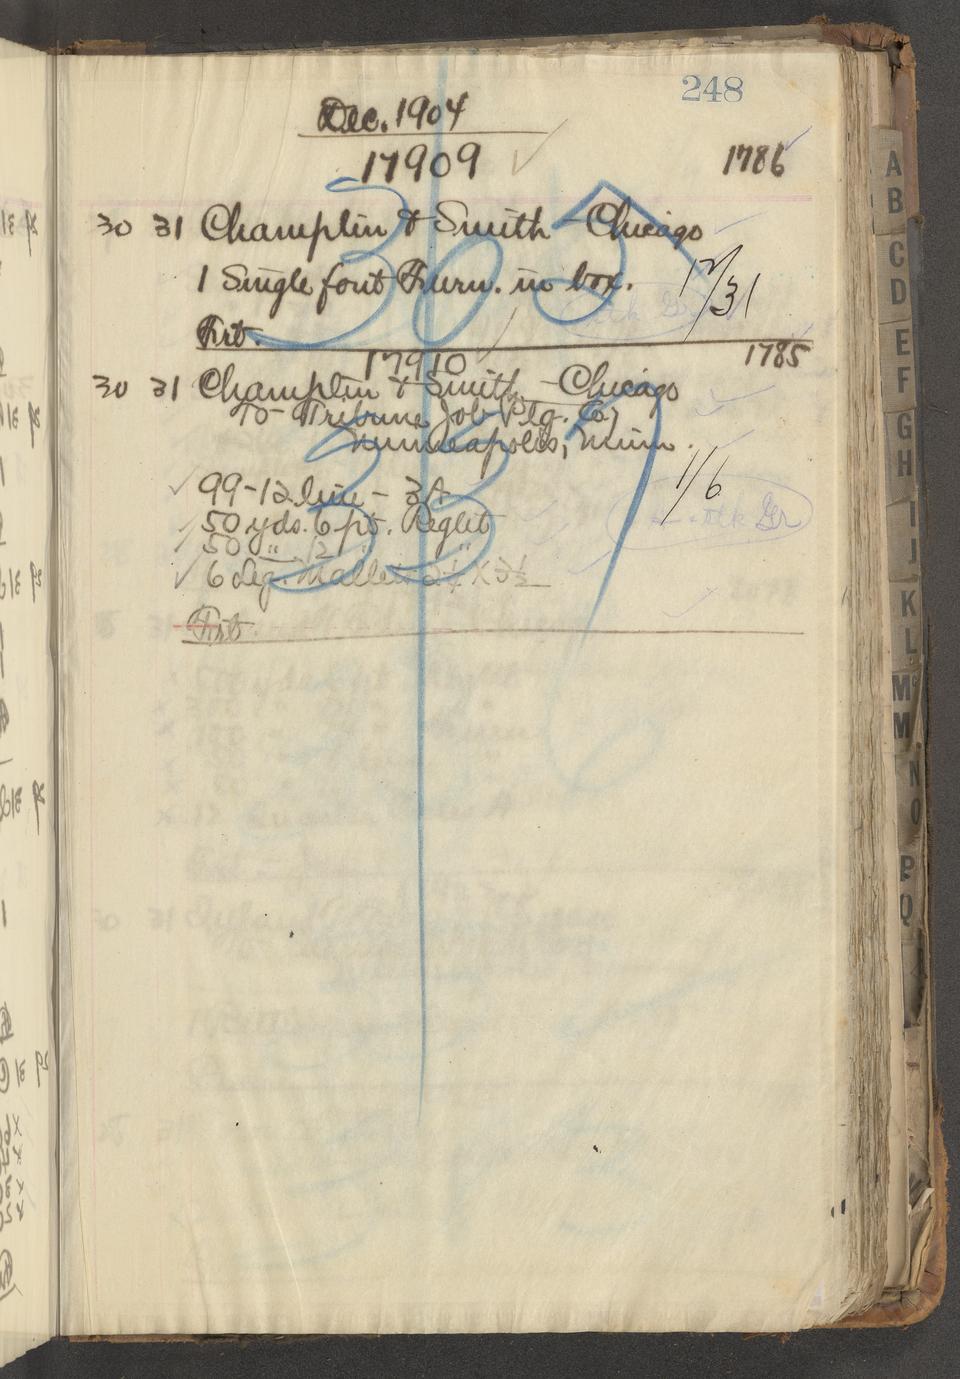 248
Dec. 1904
17909 1786
30 31 Champlin & Smith - Chicago
1 Single font Furn. in box. 12/31
Frt.
303
17910 1785
30 31 Champlin & Smith - Chicago
To - Tribune Job Ptg. Co,
Minneapolis, Minn.
1/6
99 - 12 line - 3A
50 yds. 6 pt. Reglet
50 " 12 " "
6 Leg. Mallets 2¼ x 3½
Frt.
337
A
B
C
D
E
F
G
H
I
J
K
L
Mc
M
N
O
P
Q